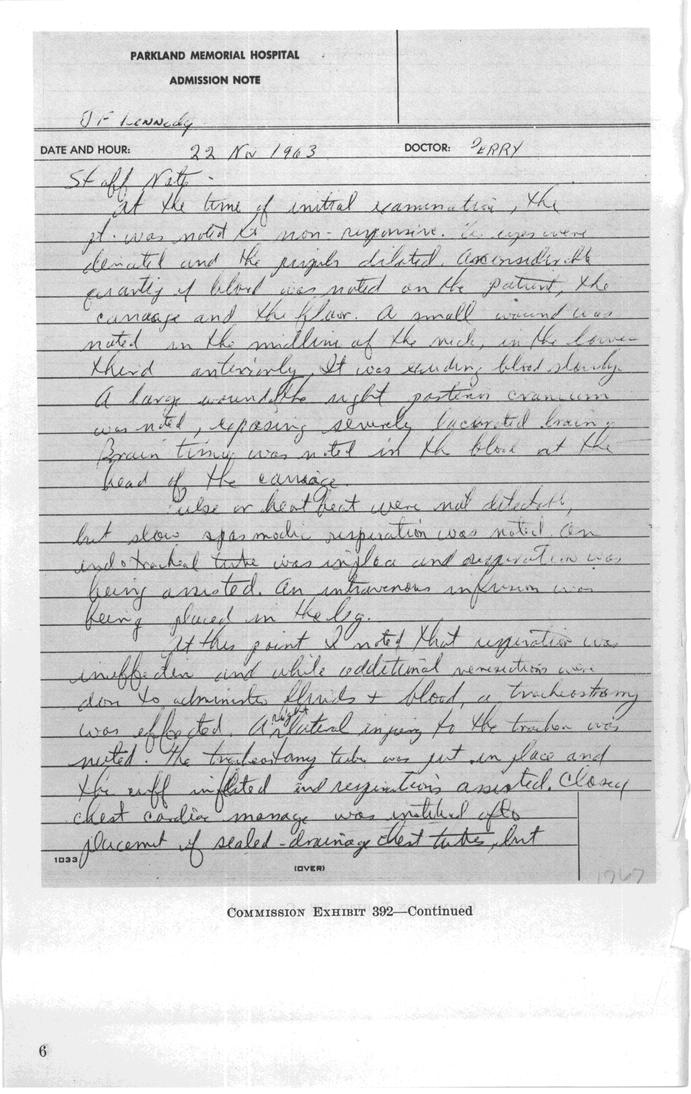 PARKLAND MEMORIAL HOSPITAL
ADMISSION NOTE
J F Kennedy
DATE AND HOUR: 22 Nov 1963 DOCTOR: PERRY
Staff Note -
At the time of initial examination, the
pt. was noted to non-responsive. The eyes were
deviated and the pupils dilated. A considerable
quantity of blood was noted on the patient, the
carriage and the floor. A small wound was
noted in the midline of the neck, in the lower
third anteriorly. It was exuding blood slowly.
A large wound the right posterior cranium
was noted, exposing severely lacerated brain.
Brain tissue was noted in the blood at the
head of the carriage.
Pulse or heartbeat were not detectable,
but slow spasmodic respiration was noted. An
endotracheal tube was in place and respiration was
being assisted. An intravenous infusion was
being placed in the leg.
At this point I noted that respiration was
ineffective and while additional venesections were
done to administer fluids + blood, a tracheostomy
was effected. A right lateral injury to the trachea was
noted. The tracheostomy tube was put in place and
the cuff inflated and respirations assisted. Closed
chest cardiac massage was instituted after
placement of sealed-drainage chest tubes, but
1033
(OVER)
COMMISSION EXHIBIT 392—Continued
6